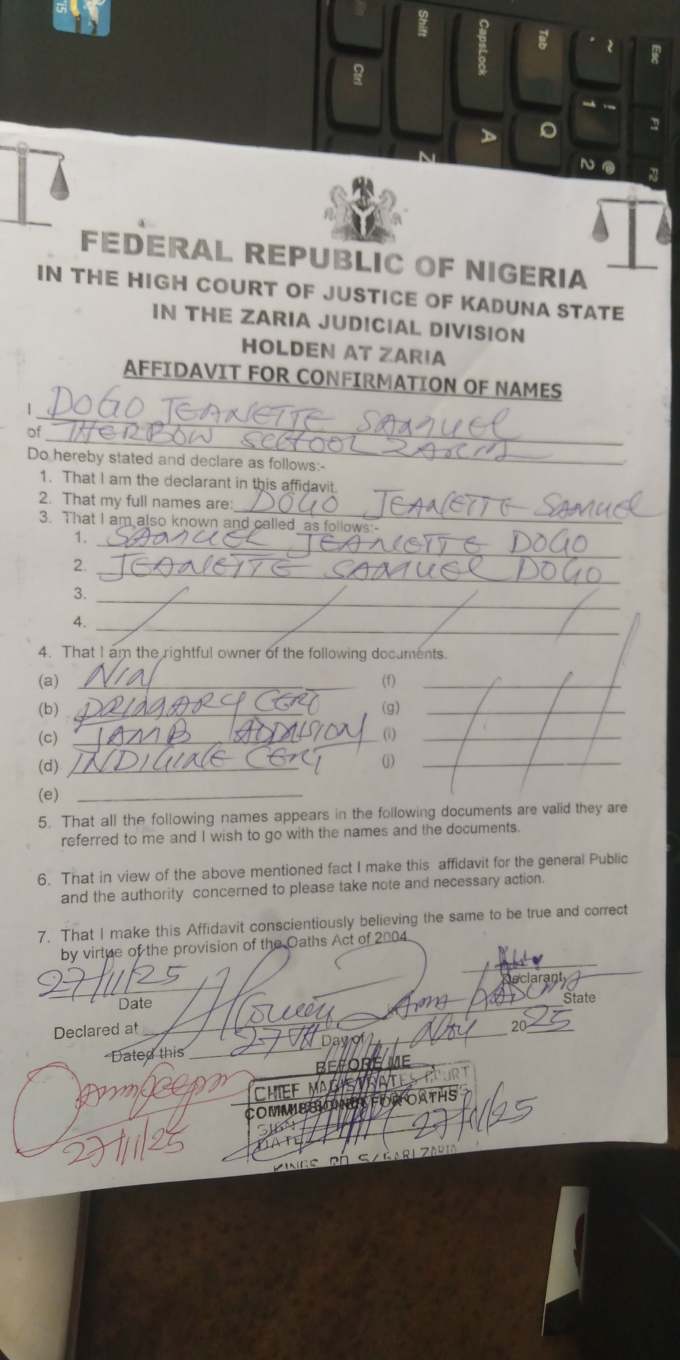 Esc F1 F2
~ ! 1 @ 2
Tab Q
CapsLock A
Shift Z
Ctrl
'15
FEDERAL REPUBLIC OF NIGERIA
IN THE HIGH COURT OF JUSTICE OF KADUNA STATE
IN THE ZARIA JUDICIAL DIVISION
HOLDEN AT ZARIA
AFFIDAVIT FOR CONFIRMATION OF NAMES
I DOGO JEANETTE SAMUEL
of THERBOW SCHOOL ZARIA
Do hereby stated and declare as follows:-
1. That I am the declarant in this affidavit.
2. That my full names are: DOGO JEANETTE SAMUEL
3. That I am also known and called as follows:-
1. SAMUEL JEANETTE DOGO
2. JEANETTE SAMUEL DOGO
3.
4.
4. That I am the rightful owner of the following documents.
(a) NIN (f)
(b) PRIMARY CERT (g)
(c) JAMB ADMISION (i)
(d) INDIGINE CERT (j)
(e)
5. That all the following names appears in the following documents are valid they are
referred to me and I wish to go with the names and the documents.
6. That in view of the above mentioned fact I make this affidavit for the general Public
and the authority concerned to please take note and necessary action.
7. That I make this Affidavit conscientiously believing the same to be true and correct
by virtue of the provision of the Oaths Act of 2004
27/11/25
Date Declarant
Declared at State
Dated this 27th Day of Nov 2025
BEFORE ME
CHIEF MAGISTRATES COURT
COMMISSIONER FOR OATHS
SIGN
DATE 27/11/25
KINGS RD S/GARI ZARIA
27/11/25